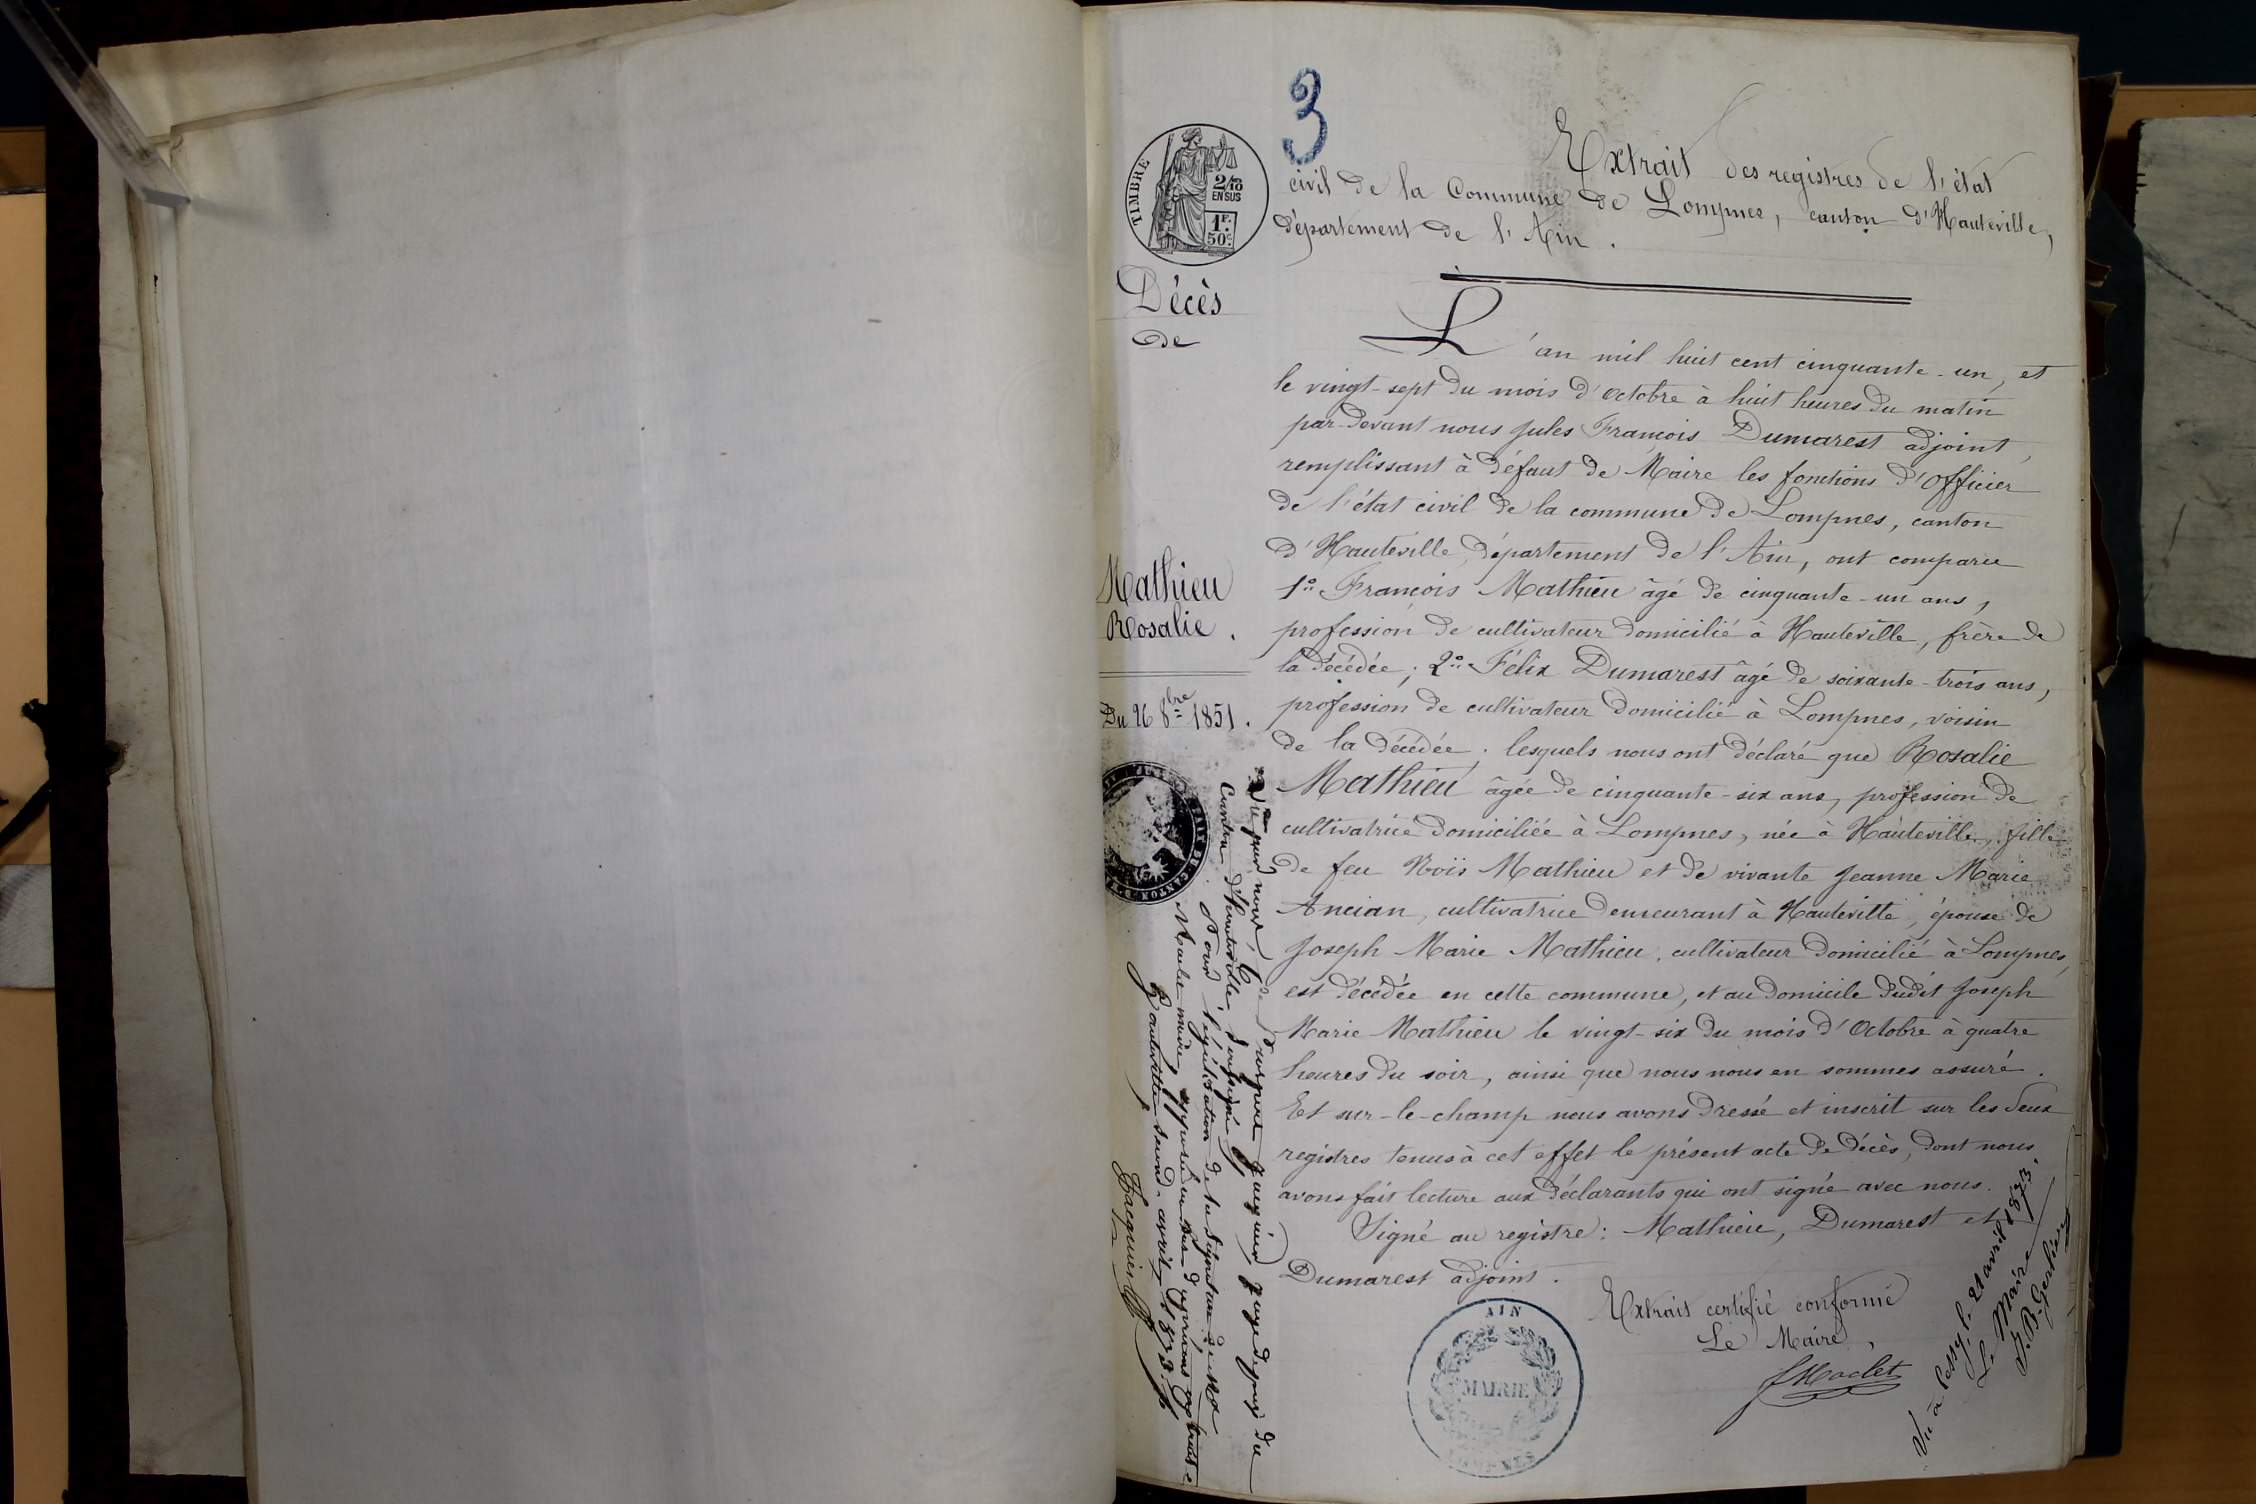 3
TIMBRE
2/10
EN SUS
1F.
50c.
Extrait des registres de l'état
civil de la Commune de Lompnes, canton d'Hauteville,
département de l'Ain.
Décès
de
Mathieu
Rosalie.
Du 26 8bre 1851.
L'an mil huit cent cinquante-un, et
le vingt-sept du mois d'Octobre à huit heures du matin
par-devant nous Jules François Dumarest adjoint,
remplissant à défaut de Maire les fonctions d'Officier
de l'état civil de la commune de Lompnes, canton
d'Hauteville, département de l'Ain, ont comparu
1° François Mathieu âgé de cinquante-un ans,
profession de cultivateur domicilié à Hauteville, frère de
la décédée; 2° Félix Dumarest âgé de soixante-trois ans,
profession de cultivateur domicilié à Lompnes, voisin
de la décédée. lesquels nous ont déclaré que Rosalie
Mathieu âgée de cinquante-six ans, profession de
cultivatrice domiciliée à Lompnes, née à Hauteville, fille
de feu Mathieu et de vivante Jeanne Marie
Ancian, cultivatrice demeurant à Hauteville, épouse de
Joseph Marie Mathieu, cultivateur domicilié à Lompnes,
est décédée en cette commune, et au domicile dudit Joseph
Marie Mathieu le vingt-six du mois d'Octobre à quatre
heures du soir, ainsi que nous nous en sommes assuré.
Et sur-le-champ nous avons dressé et inscrit sur les deux
registres tenus à cet effet le présent acte de décès, dont nous
avons fait lecture aux déclarants qui ont signé avec nous.
Signé au registre: Mathieu, Dumarest et
Dumarest adjoint.
Extrait certifié conforme
Le Maire,
AIN
MAIRIE
LOMPNES
Vu par nous, juge de paix du
Canton d'Hauteville, soussigné
Pour légalisation de la signature de Mr
maire, apposée au bas d'
Hauteville deux avril 1873.
Jacquier
Vu à Lessy, le 21 avril 1873.
Le Maire
J. B. Gerlier